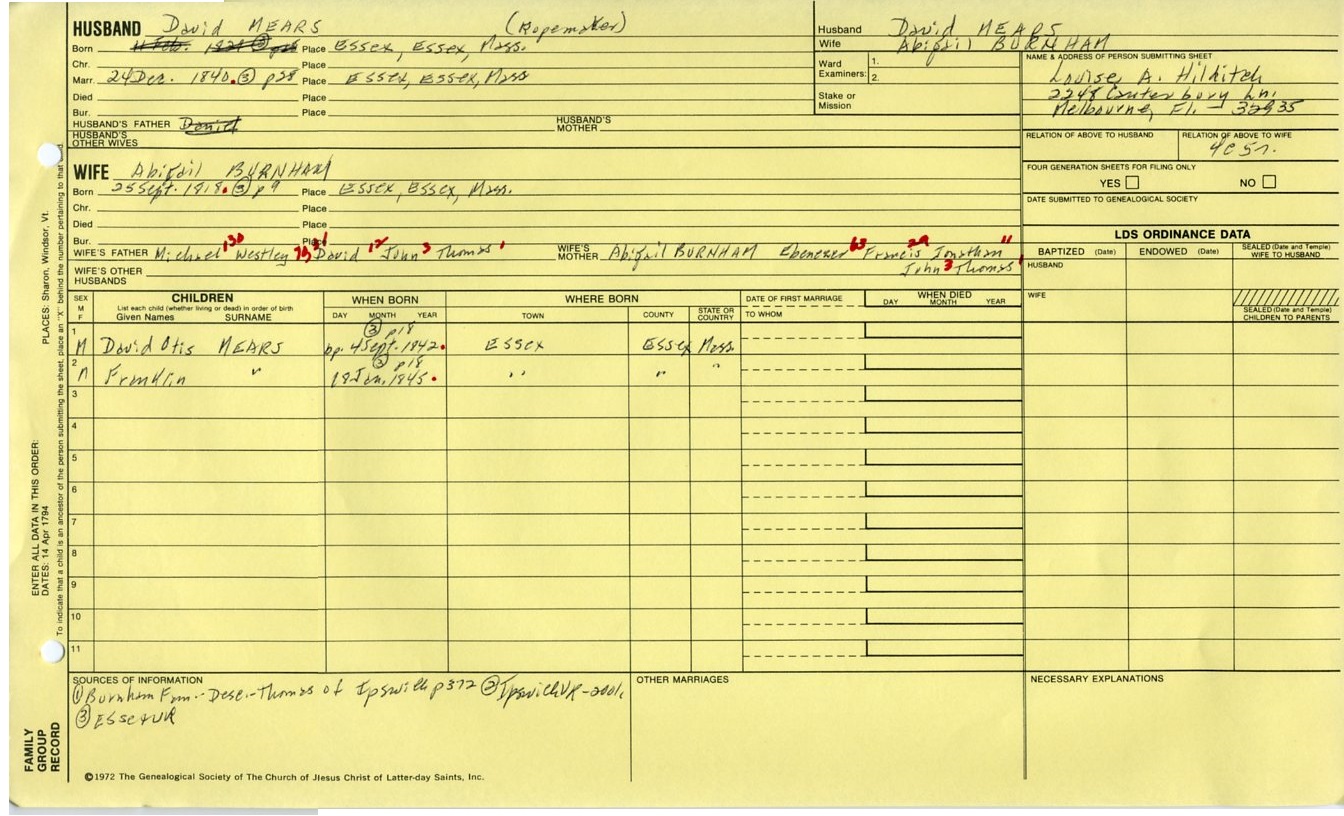 HUSBAND David MEARS (Ropemaker)
Born 11 Feb. 1821 ③ Place Essex, Essex, Mass.
Chr. Place
Marr. 24 Dec. 1840. ③ p28 Place Essex, Essex, Mass
Died Place
Bur. Place
HUSBAND'S FATHER Daniel HUSBAND'S MOTHER
HUSBAND'S OTHER WIVES
Husband David MEARS
Wife Abigail BURNHAM
Ward Examiners: 1.
2.
Stake or Mission
NAME & ADDRESS OF PERSON SUBMITTING SHEET
Louise A. Hilditch
2248 Canterbury Ln.
Melbourne, Fl. - 32935
RELATION OF ABOVE TO HUSBAND
RELATION OF ABOVE TO WIFE
4C5r.
FOUR GENERATION SHEETS FOR FILING ONLY
YES NO
DATE SUBMITTED TO GENEALOGICAL SOCIETY
WIFE Abigail BURNHAM
Born 25 Sept. 1818. ③ p9 Place Essex, Essex, Mass.
Chr. Place
Died Place
Bur. Place
WIFE'S FATHER Michael 130 Westley David 12 John 3 Thomas 1 WIFE'S MOTHER Abigail BURNHAM Ebenezer 63 Francis 29 Jonathan 11
John 3 Thomas 1
WIFE'S OTHER HUSBANDS
LDS ORDINANCE DATA
BAPTIZED (Date) ENDOWED (Date) SEALED (Date and Temple) WIFE TO HUSBAND
HUSBAND
WIFE
SEALED (Date and Temple) CHILDREN TO PARENTS
SEX M F
CHILDREN
List each child (whether living or dead) in order of birth
Given Names SURNAME
WHEN BORN
DAY MONTH YEAR
WHERE BORN
TOWN COUNTY STATE OR COUNTRY
DATE OF FIRST MARRIAGE
TO WHOM
WHEN DIED
DAY MONTH YEAR
1 ③ p18
M David Otis MEARS bp. 4 Sept. 1842. Essex Essex Mass.
2 ③ p18
M Franklin " 18 Jan. 1845. " " "
3
4
5
6
7
8
9
10
11
SOURCES OF INFORMATION
① Burnham Fam.-Desc.-Thomas of Ipswich p372 ② Ipswich VR-
③ Essex VR
OTHER MARRIAGES
NECESSARY EXPLANATIONS
©1972 The Genealogical Society of The Church of JIesus Christ of Latter-day Saints, Inc.
FAMILY GROUP RECORD
ENTER ALL DATA IN THIS ORDER:
DATES: 14 Apr 1794
PLACES: Sharon, Windsor, Vt.
To indicate that a child is an ancestor of the person submitting the sheet, place an "X" behind the number pertaining to that